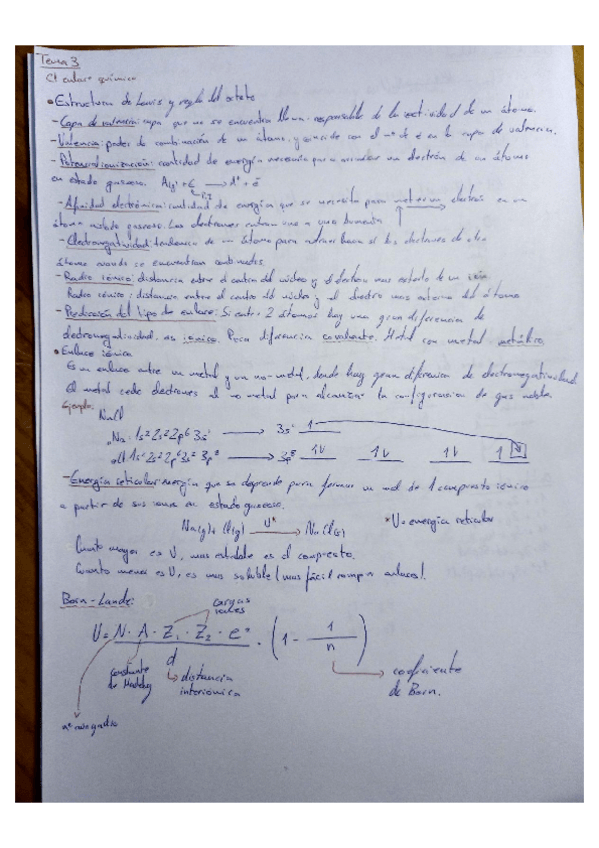 Tema 3
El enlace químico
• Estructura de Lewis y regla del octeto
- Capa de valencia: capa que no se encuentra llena: responsable de la reactividad de un átomo.
- Valencia: poder de combinación de un átomo, y coincide con el nº de e en la capa de valencia.
- Potencial ionización: cantidad de energía necesaria para arrancar un electrón de un átomo
en estado gaseoso. A(g) + E → A⁺ + e⁻
- Afinidad electrónica: cantidad de energía que se necesita para meter un electrón en un
átomo estado gaseoso. Los electrones entran uno a uno
- Electronegatividad: tendencia de un átomo para atraer hacia sí los electrones de otro
átomo cuando se encuentran combinados
- Radio iónico: distancia entre el centro del núcleo y el electron mas externo de un ión
Radio iónico: distancia entre el centro del núcleo y el electro mas externo del átomo
- Predicación del tipo de enlace: Si entre 2 átomos hay una gran diferencia de
electronegatividad, es iónico. Poca diferencia covalente. Metal con metal metálico.
• Enlace iónico
Es un enlace entre un metal y un no-metal, donde hay gran diferencia de electronegatividad
El metal cede electrones al no metal para alcanzar la configuración de gas noble.
Ejemplo:
NaCl
Na: 1s² 2s² 2p⁶ 3s¹ → 3s¹ 1
Cl 1s² 2s² 2p⁶ 3s² 3p⁵ → 3p⁵ 1↓ 1↓ 1↓ 1
- Energía reticular: energía que se desprende para formar un mol de 1 compuesto iónico
a partir de sus iones en estado gaseoso.
Na(g) + Cl(g) U* → NaCl(s) * U = energía reticular
Cuanto mayor es U, mas estable es el compuesto.
Cuanto menor es U, es mas soluble (mas fácil romper enlaces).
Born-Landé:
cargas
iones
U = N · A · Z₁ · Z₂ · e² / d · (1 - 1/n)
constante
de Madelung
distancia
interiónica
coeficiente
de Born.
nº avogadro